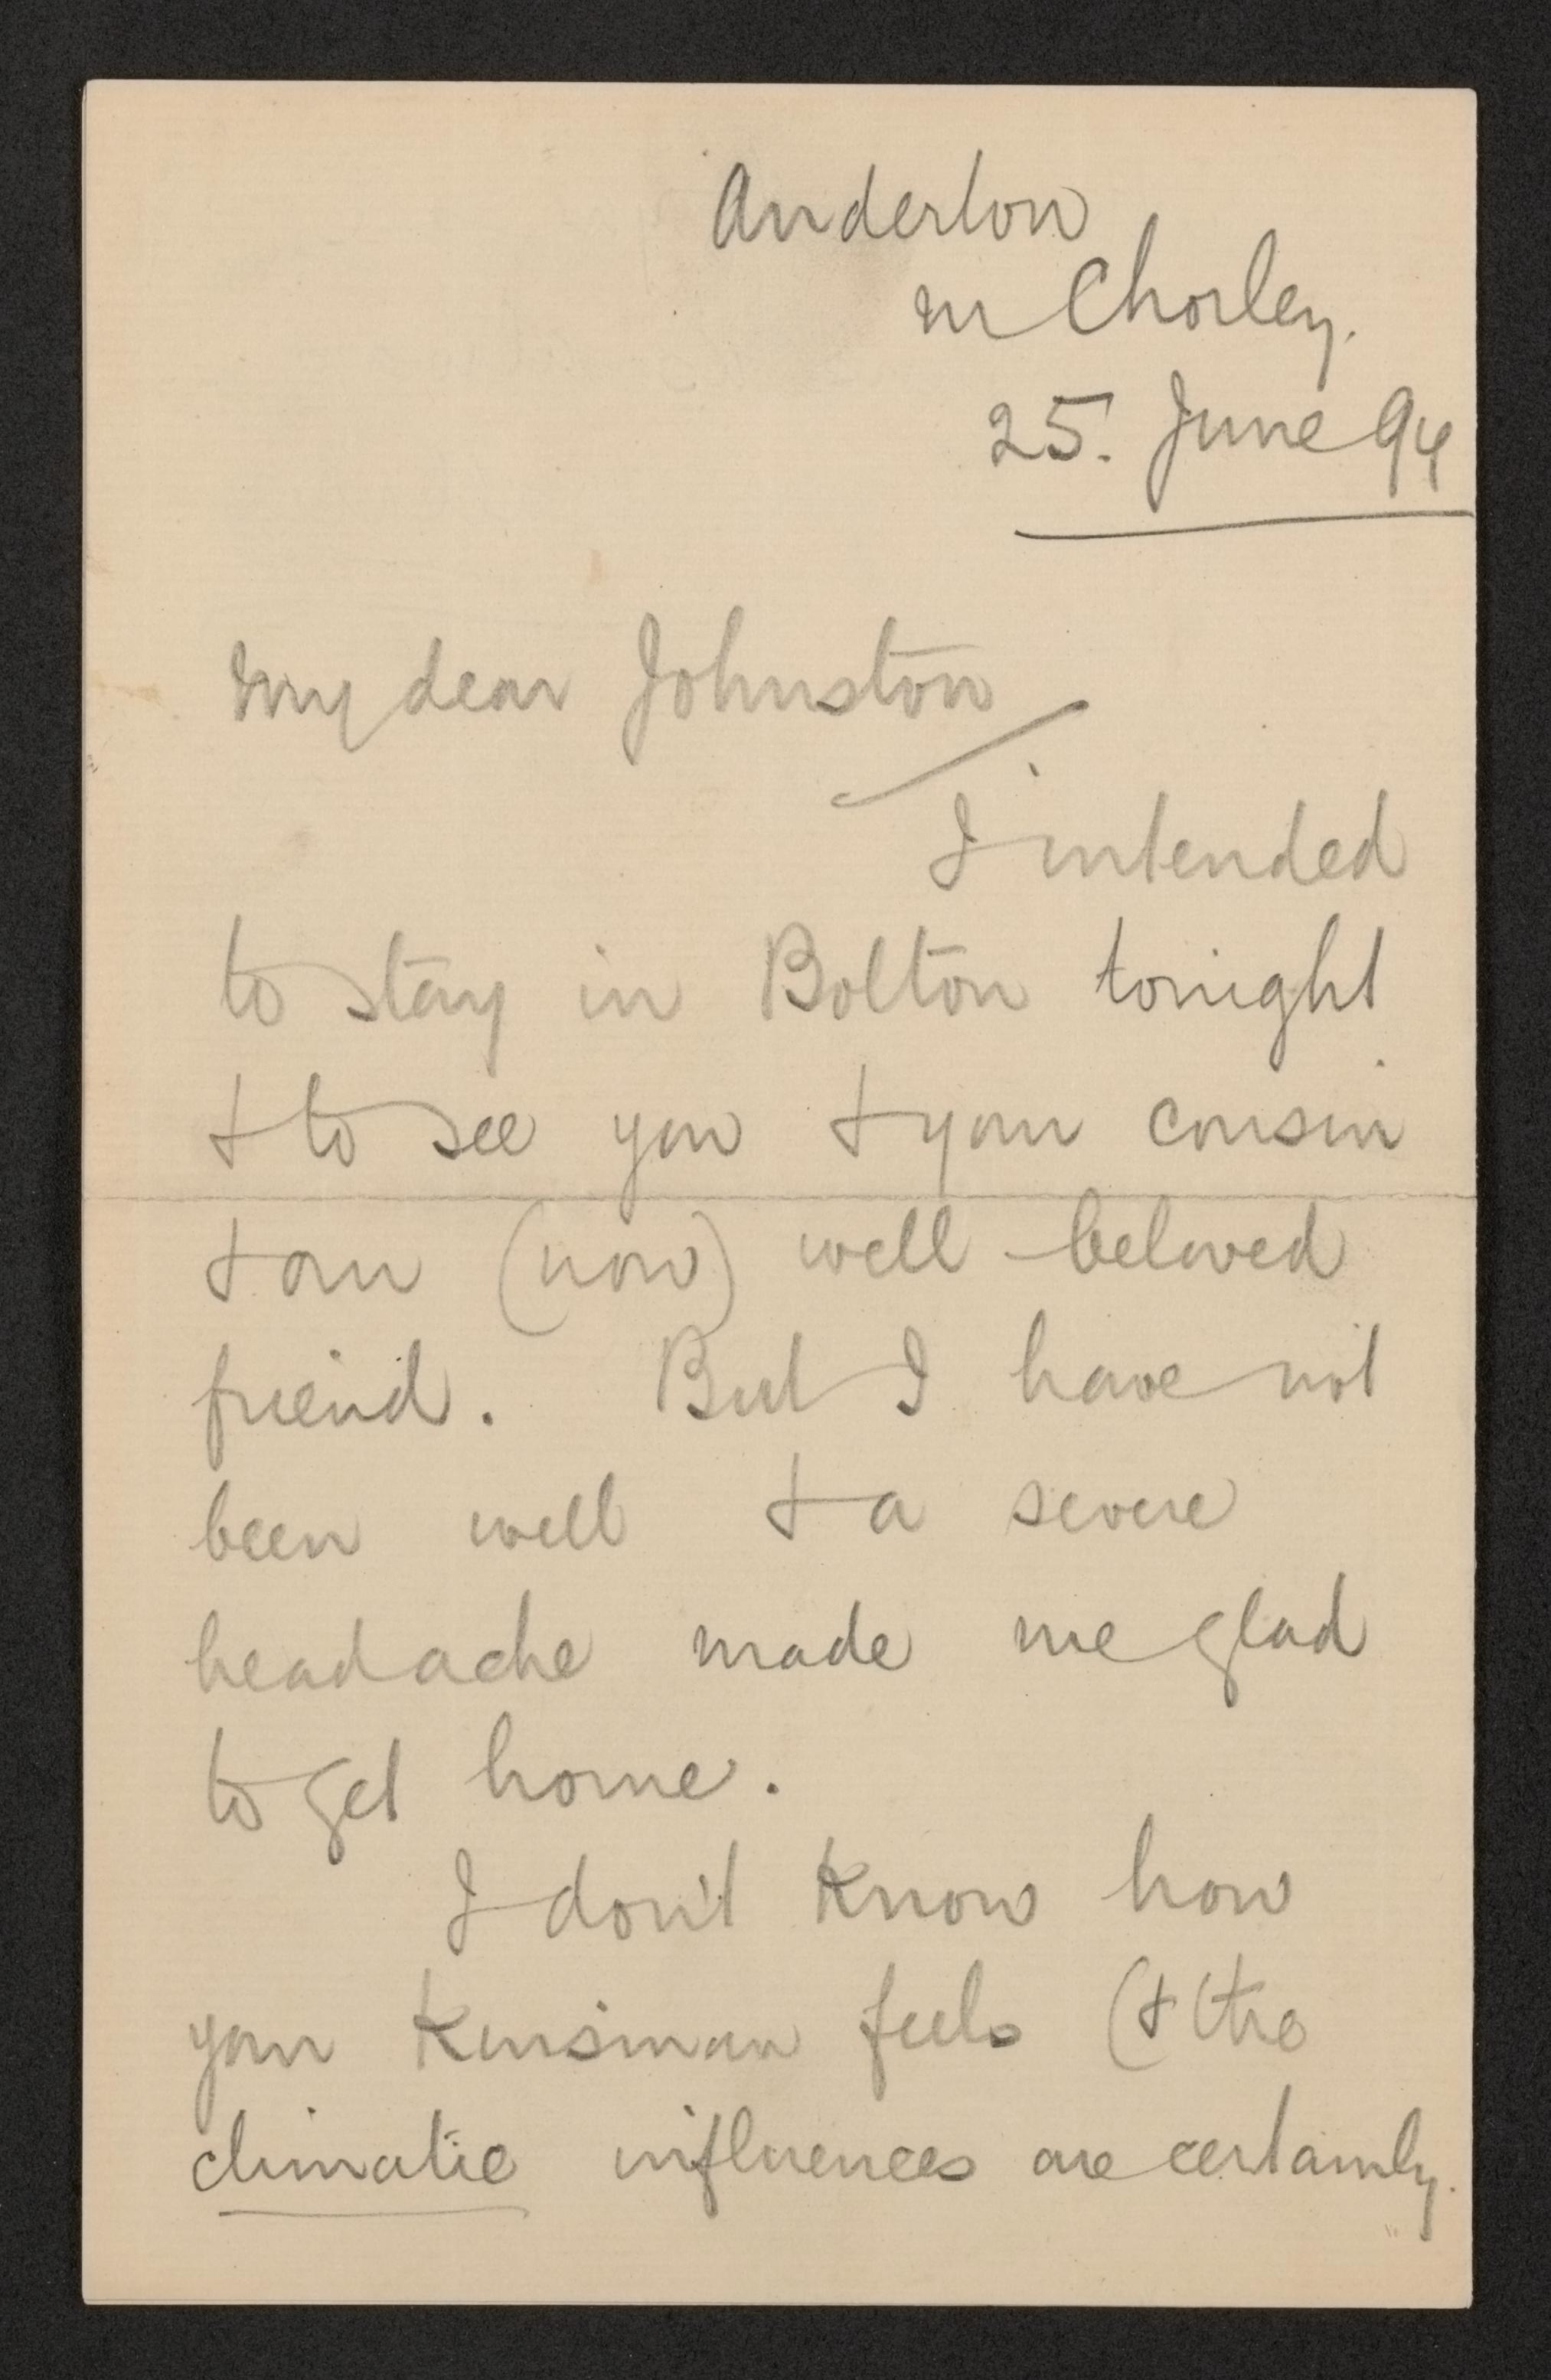 Anderton
nr Chorley.
25. June 94
My dear Johnston
I intended
to stay in Bolton tonight
& to see you & your cousin
& our (now) well-beloved
friend. But I have not
been well & a severe
headache made me glad
to get home.
I don't know how
your kinsman feels (& the
climatic influences are certainly